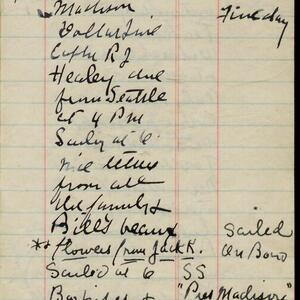 Madison Fine day
Dollar Line
Capt R J
Healey due
from Seattle
at 4 PM
Sail at 6.
nice letters
from all
the family &
Bill's beaux Sailed
** flowers from Jack K. On Board
Sailed at 6 SS
"Pres Madison"